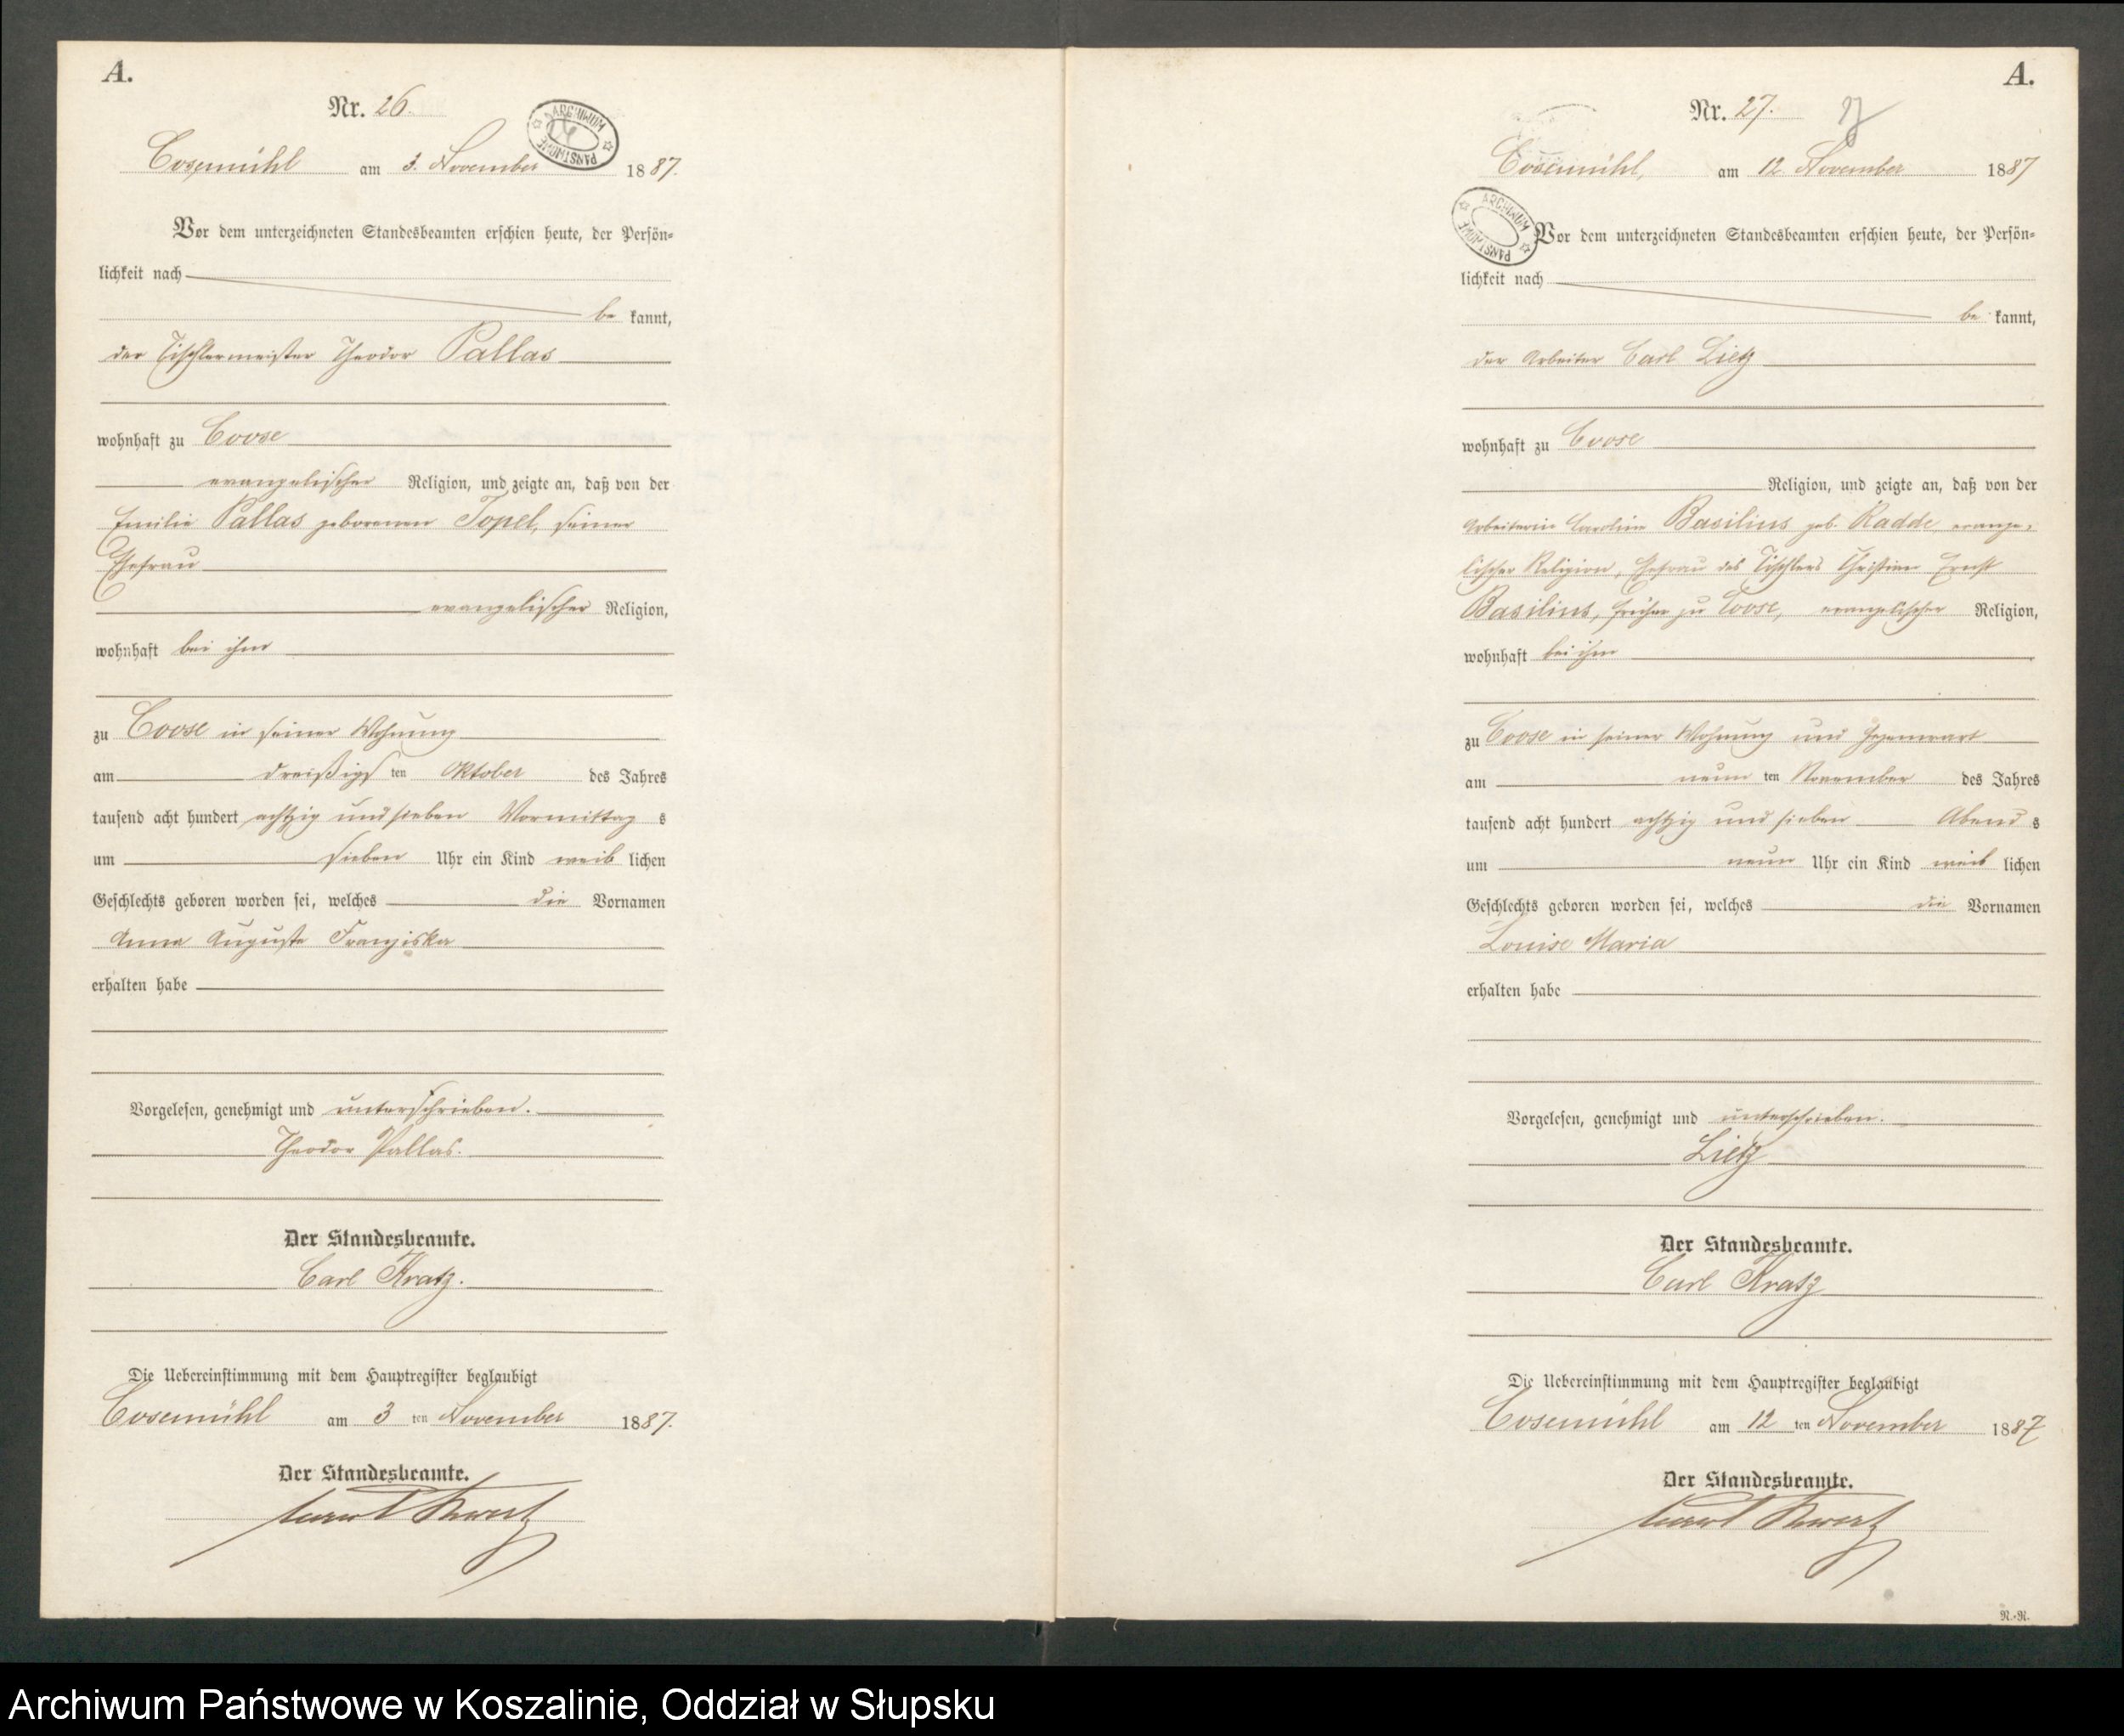 A.
Nr. 26.
ARCHIWUM PAŃSTWOWE
Cosemühl am 3. November 1887.
Vor dem unterzeichneten Standesbeamten erschien heute, der Persön=
lichkeit nach
be kannt,
der Tischlermeister Theodor Pallas
wohnhaft zu Coose
evangelischer Religion, und zeigte an, daß von der
Emilie Pallas geborenen Topel, seiner
Ehefrau
evangelischer Religion,
wohnhaft bei ihm
zu Coose in seiner Wohnung
am dreißigs ten Oktober des Jahres
tausend acht hundert achtzig und sieben Vormittag s
um sieben Uhr ein Kind weib lichen
Geschlechts geboren worden sei, welches die Vornamen
Anna Auguste Franziska
erhalten habe
Vorgelesen, genehmigt und unterschrieben.
Theodor Pallas.
Der Standesbeamte.
Carl Kratz.
Die Uebereinstimmung mit dem Hauptregister beglaubigt
Cosemühl am 3 ten November 1887.
Der Standesbeamte.
Carl Kratz
A.
Nr. 27.
Cosemühl, am 12. November 1887
ARCHIWUM PAŃSTWOWE
Vor dem unterzeichneten Standesbeamten erschien heute, der Persön=
lichkeit nach
be kannt,
der Arbeiter Carl Lietz
wohnhaft zu Coose
Religion, und zeigte an, daß von der
Arbeiterin Caroline Basilius geb. Radde, evange=
lischer Religion, Ehefrau des Tischlers Christian Ernst
Basilius, früher zu Coose, evangelischer Religion,
wohnhaft bei ihm
zu Coose in seiner Wohnung und Gegenwart
am neun ten November des Jahres
tausend acht hundert achtzig und sieben Abend s
um neun Uhr ein Kind weib lichen
Geschlechts geboren worden sei, welches die Vornamen
Louise Maria
erhalten habe
Vorgelesen, genehmigt und unterschrieben.
Lietz
Der Standesbeamte.
Carl Kratz
Die Uebereinstimmung mit dem Hauptregister beglaubigt
Cosemühl am 12 ten November 1887
Der Standesbeamte.
Carl Kratz
N.-N.
Archiwum Państwowe w Koszalinie, Oddział w Słupsku